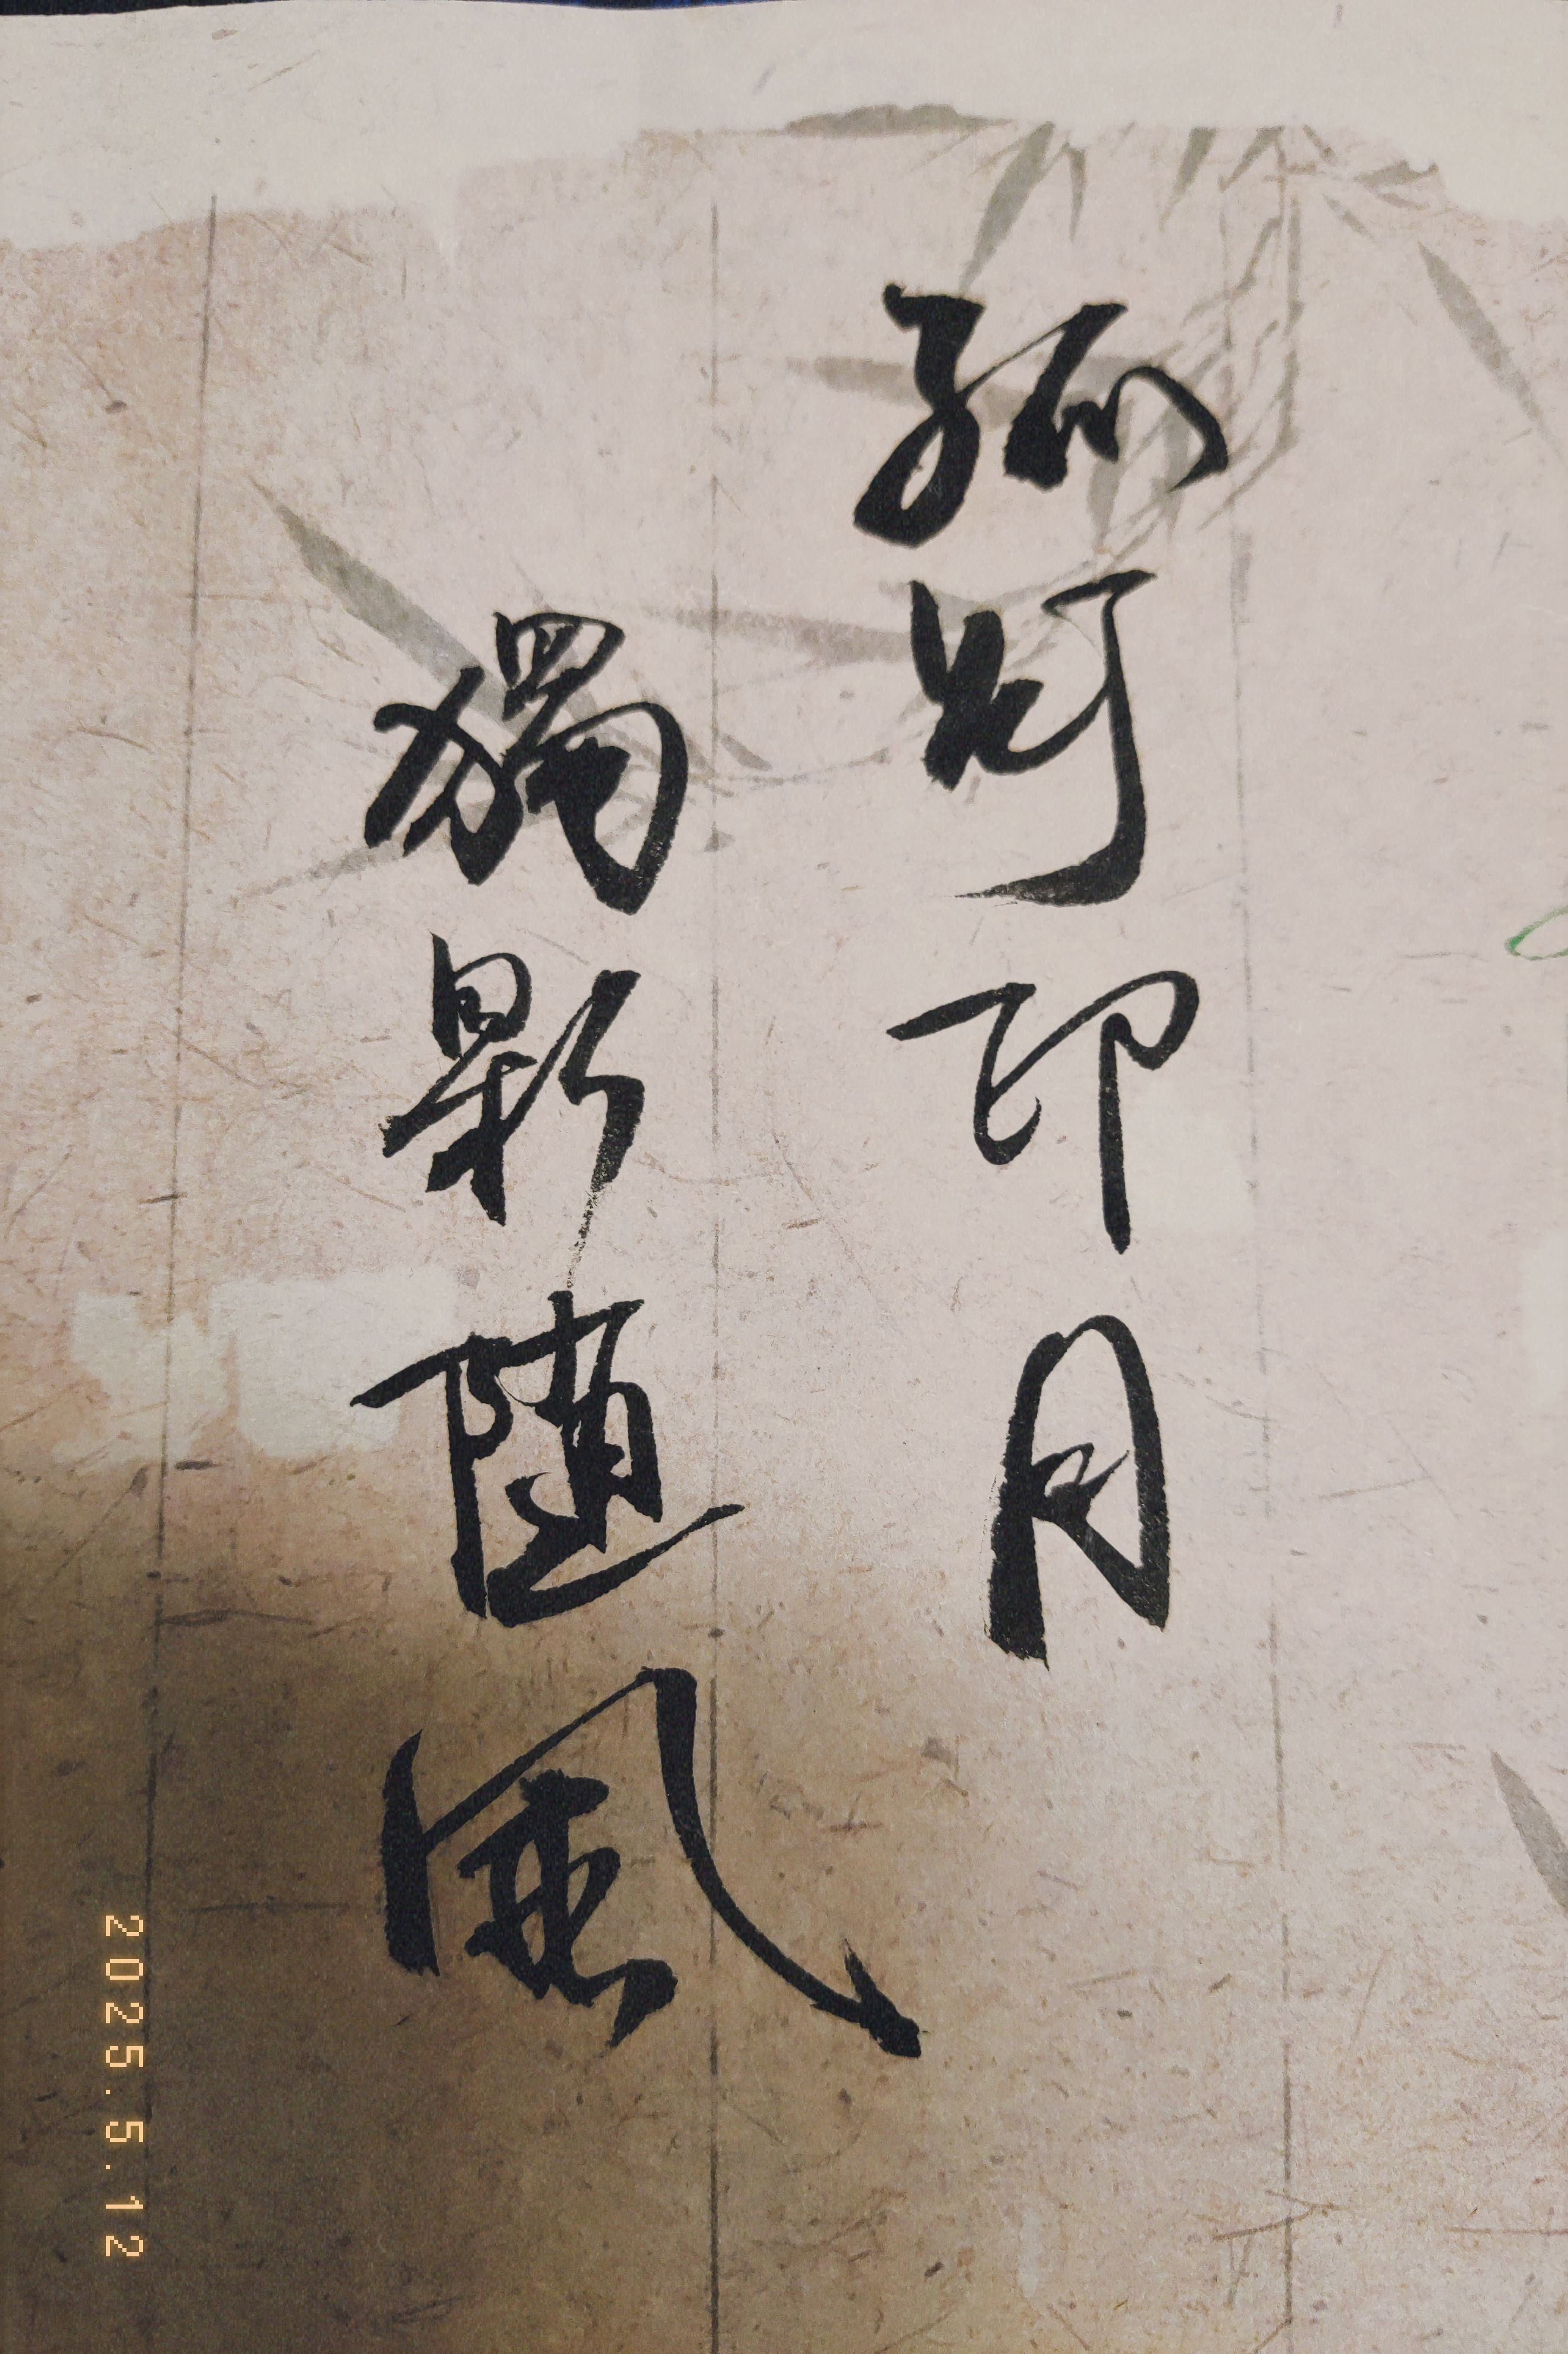 孤灯印月
獨影隨風
2025.5.12